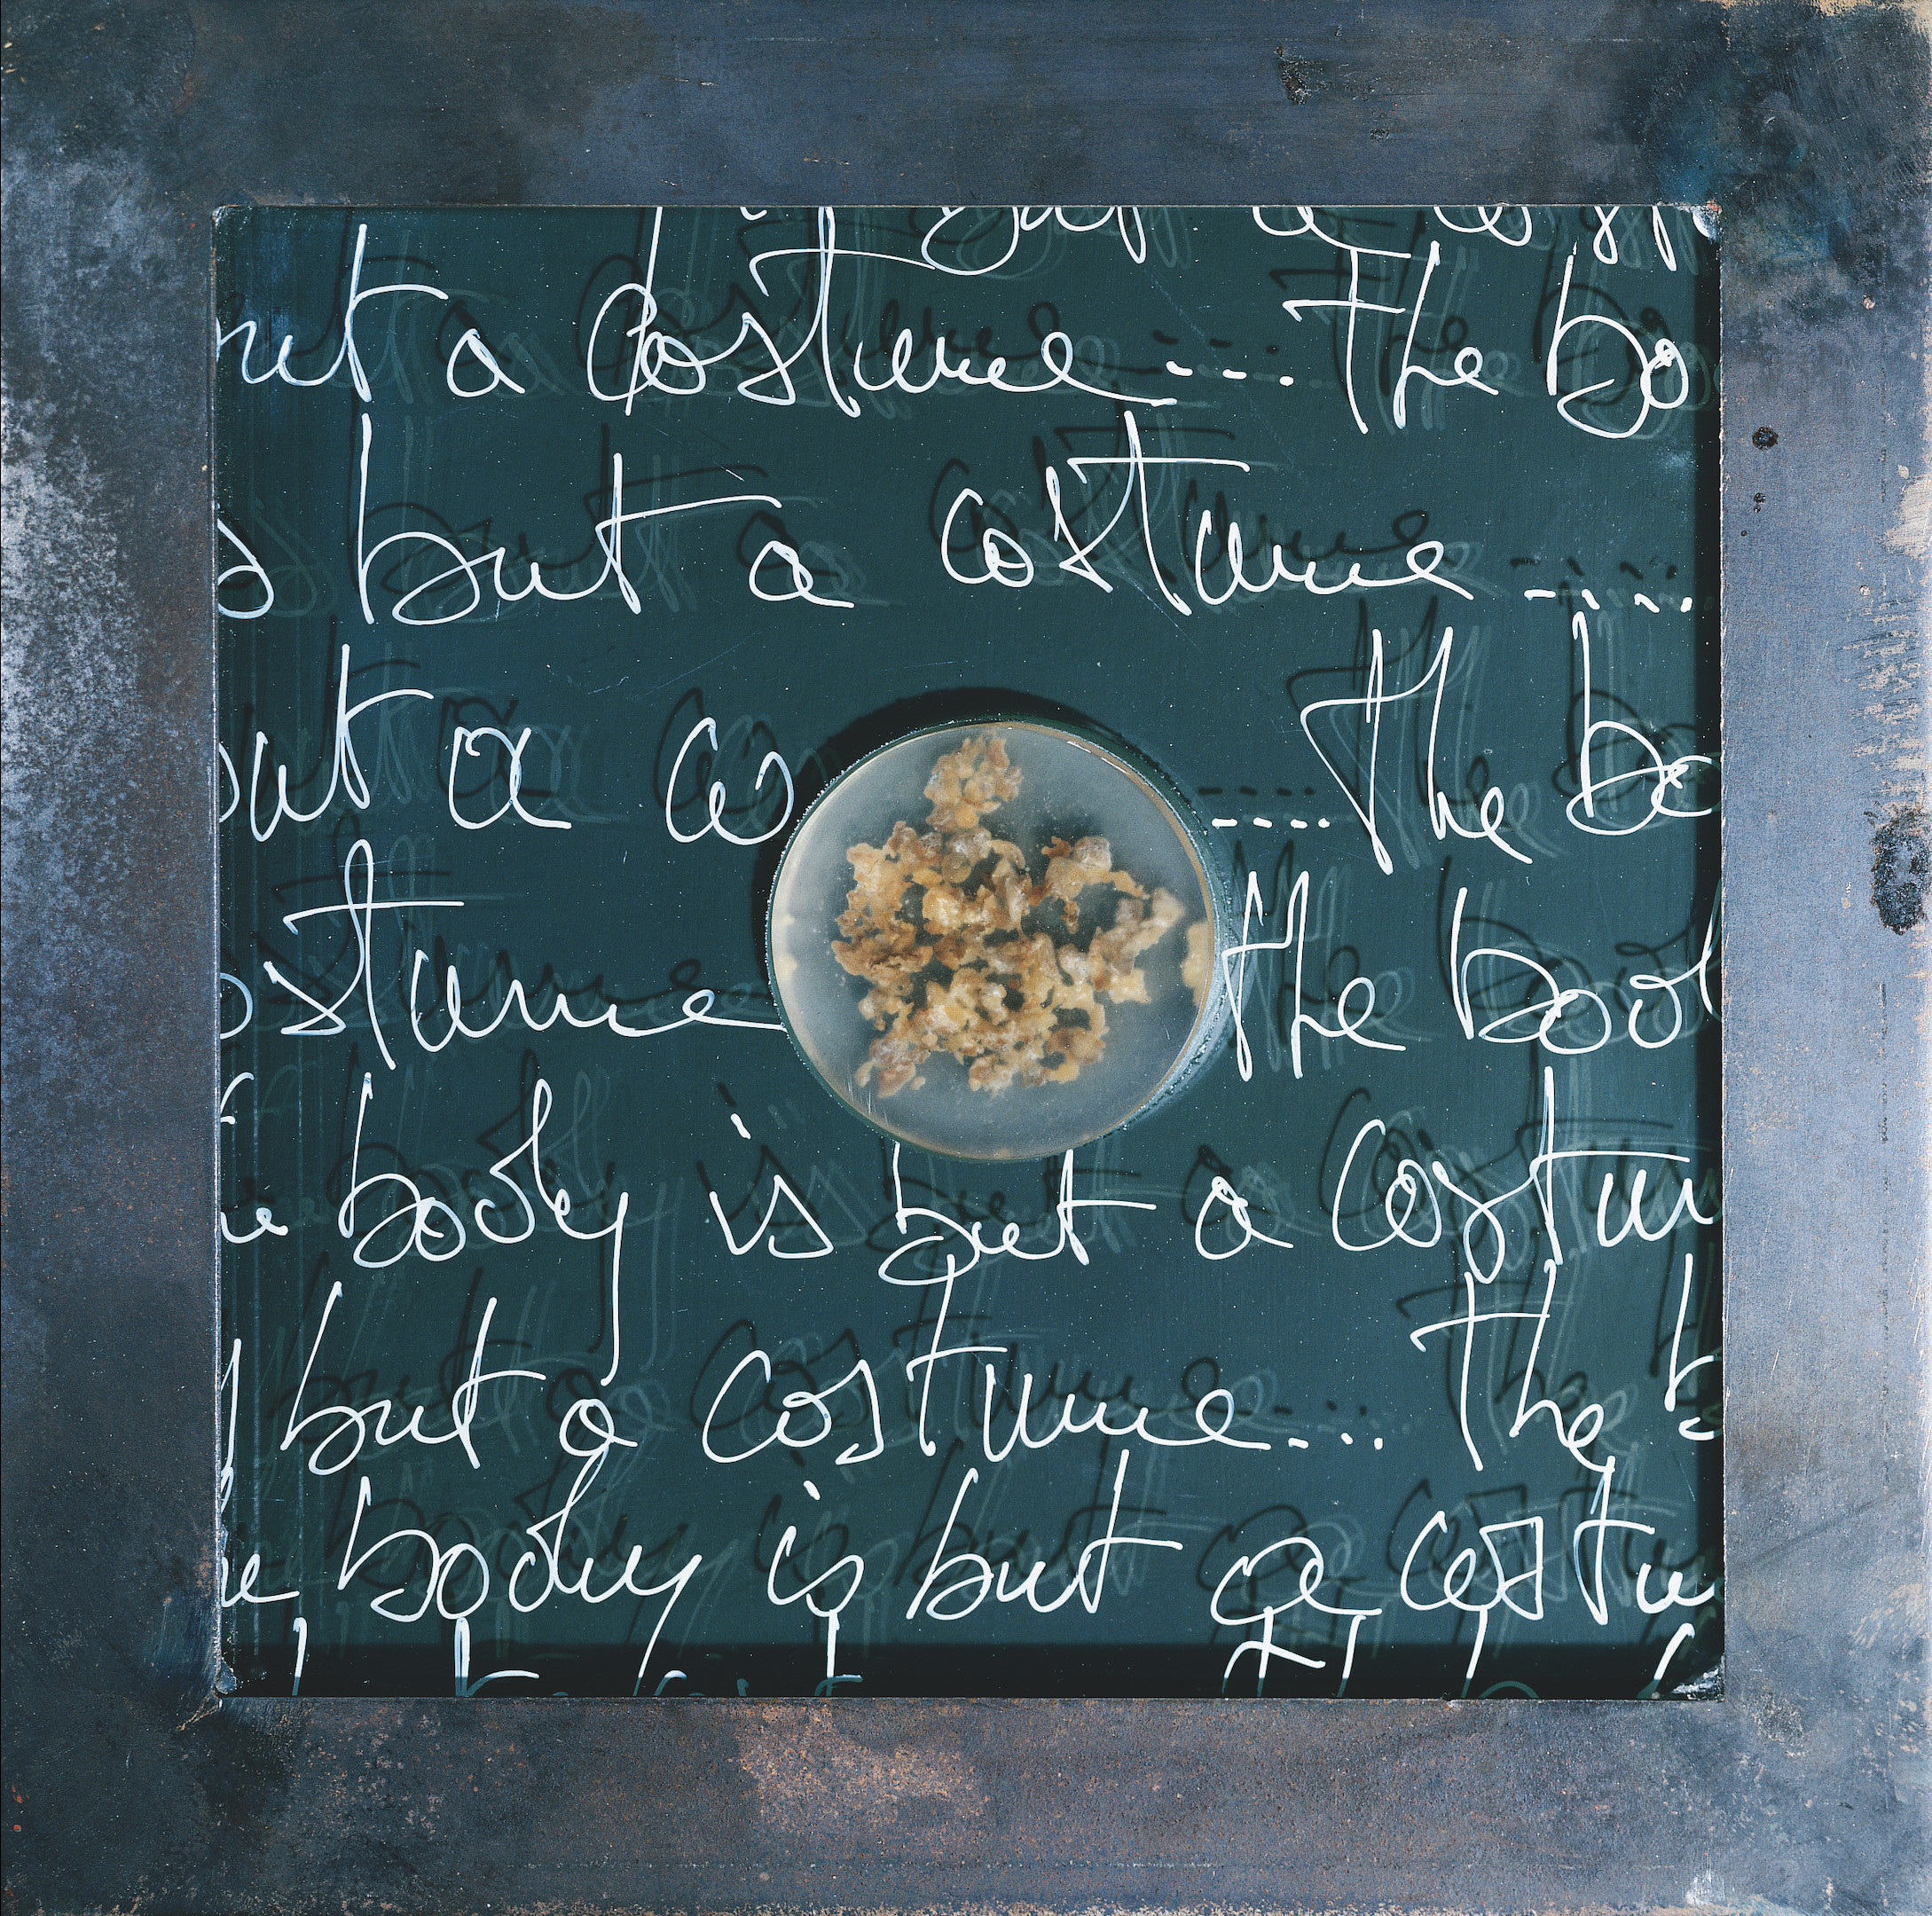 but a cos
but a Costume ... The bo
s but a costume ....
but a co .... The bo
ostume the bod
e body is but a Costum
but a costume ... The b
e body is but a costu